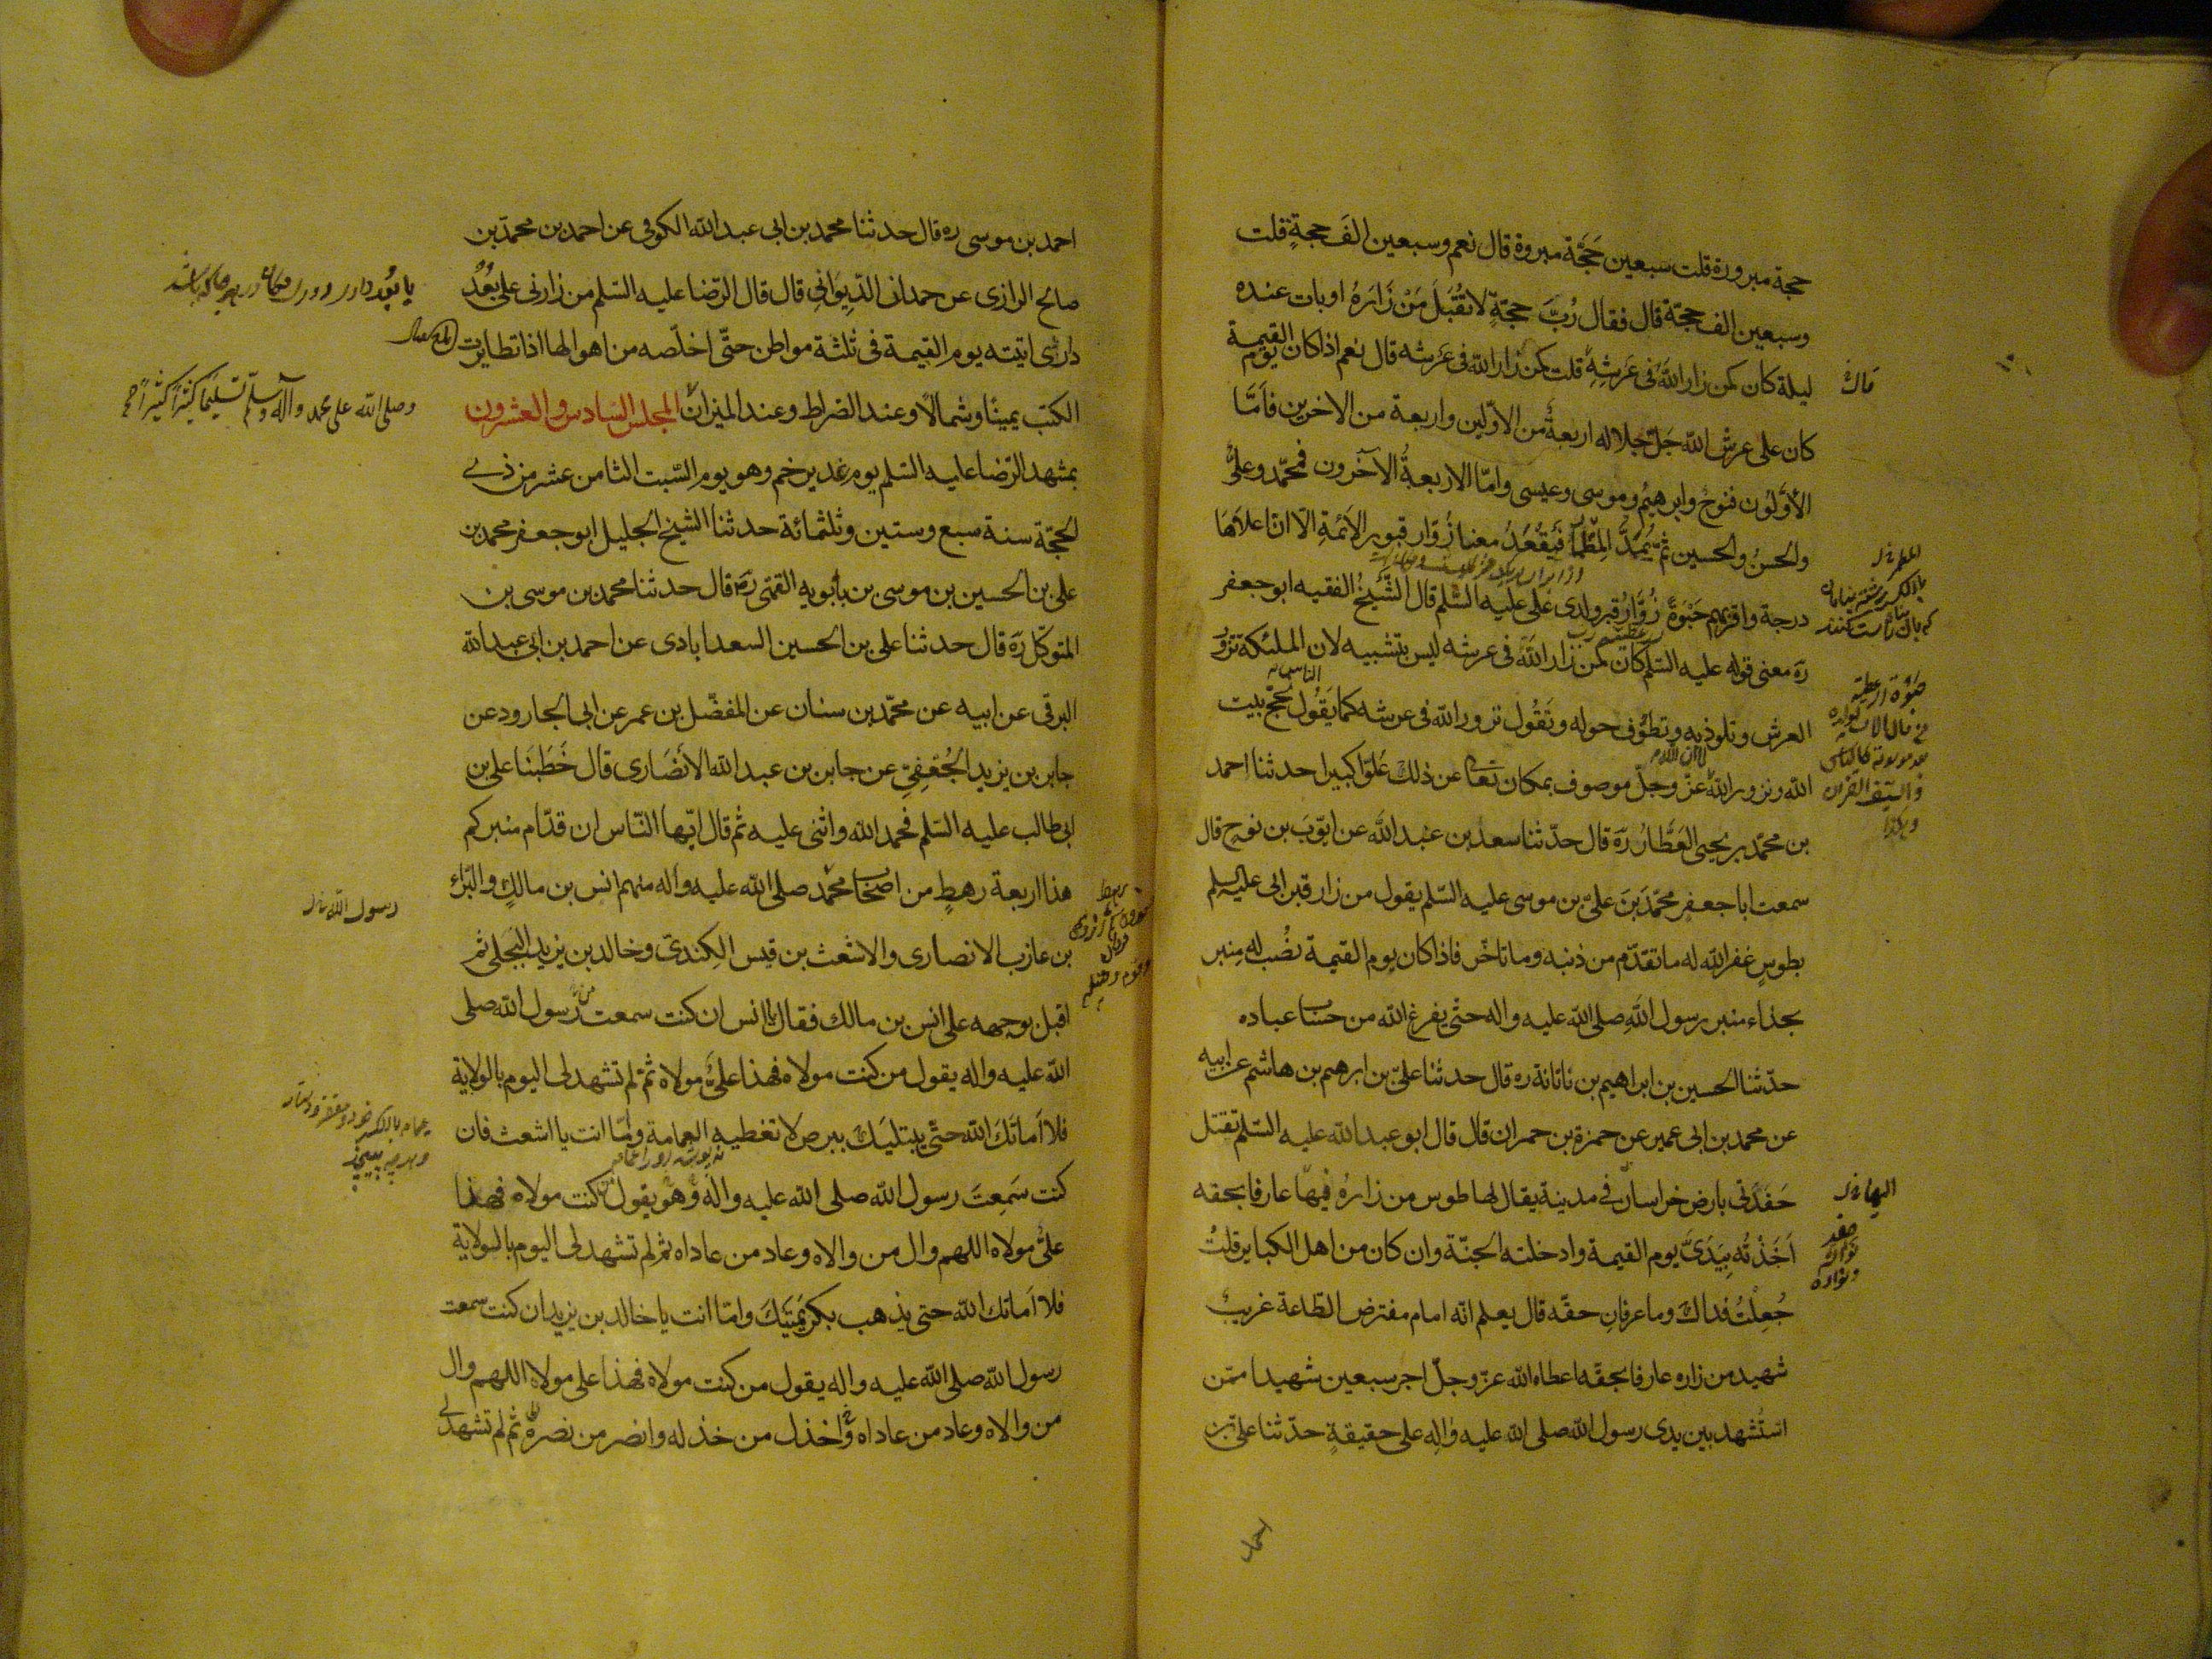 حجة مبرورة قلت سبعين حَجَّة مبروة قال نعم وسبعين الفَ حجةٍ قلت
وسبعين الف حجّة قال فقال رُبَّ حجّةٍ لا تُقْبَلَ مَنْ زَارَهُ او بات عنده
ليلة كان كمن زار اللهَ فى عَرشِهِ قلت كمن زار الله فى عَرشه قال نعم اذا كان يوم القيمة
كان على عرش الله جَلّ جلاله اربعةٌ من الاوّلين واربعة من الاخرين فاَمّا
الأوّلُون فنوحٌ وابرهيمُ وموسى وعيسى وامّا الاربعةُ الآخرون فمحمّد وعلىٌّ
والحسنُ والحسين ثمّ يُمَدُّ المِطْمَر فَيَقْعُدُ معنا زُوّار قبور الاَئمةِ الّا انّ اعلاَهَا
درجة واقربهم حَبْوَةً زُوَّارُ قبر ولدى عَلى عليه السّلم قال الشّيخُ الفقيه ابو جعفر
رَه معنى قوله عليه السّلم كان كمن زار اللهَ فى عرشه ليس بتشبيه لان الملئكة تزُورُ
العرش وتلوذ به وتطوُّف حوله وتَقُول تزور الله فى عرشه كما يَقُول نحجّ بيت
الله ونزور اللهَ عزّ وجلّ موصوف بمكان تعالى عن ذلك عُلوّا كبيرا حدثنا احمد
بن محمّد بن يحيى العَطّارُ رَه قال حدّثنا سعد بن عبد الله عن ايّوبَ بن نوح قال
سمعت ابا جعفر محمّدَ بنَ علىّ بن موسى عليه السّلم يقول من زار قبر ابى عليه السلم
بطوسٍ غفر الله له ما تقدّم من ذنبه وما تاخّر فاذا كان يوم القيمة نصُب له مِنبر
بحذاء منبر رسول اللهِ صلى الله عليه واله حتّى يفرغ الله من حساب عباده
حدّثنا الحسين بن ابراهيم بن ناتانة ره قال حدثنا علىّ بن ابرهيم بن هاشم عن ابيه
عن محمد بن ابى عمير عن حمزة بن حمران قال قال ابو عبد الله عليه السّلم تقتل
حَفَدَتى بارض خراسان فى مدينة يقال لها طوس من زارهُ فيهَا عارفا بحقه
اَخَذْتُه بِيَدَىَّ يوم القيمة وادخلته الجنّة وان كان من اهل الكباير قلتُ
جُعِلْتُ فداك وما عرفان حقّه قال يعلم انّه امام مفترض الطّاعة غريبٌ
شهيد من زاره عارفا بحقّه اعطاه الله عزّ وجلّ اجر سبعين شهيدا ممّن
استُشهد بين يدى رسول الله صلى الله عليه والِه على حقيقةٍ حدّثنا علىّ بن
احمد
احمد بن موسى ره قال حدثنا محمد بن ابى عبد الله الكوفى عن احمد بن محمّد بن
صالح الرازى عن حمدان الدِّيوَانِىِ قال قال الرّضا عليه السّلم من زارنى على بُعْدِ
دارى اتيته يوم القيمة فى ثلثة مواطن حتّى اخلّصه من اهوالها اذا تطايرت
الكتب يمينًا وشمالًا وعند الصّراط وعند الميزان المجلس السّادس والعشرون
بمشهد الرّضا عليه السّلم يوم غدير خم وهو يوم السّبت الثامن عشر من ذى
الحجّة سنة سبع وستين وثلثمائة حدثنا الشيخ الجليل ابو جعفر محمد بن
على بن الحسين بن موسى بن بابويه القمّى رَه قال حدثنا محمد بن موسى بن
المتوكّل رَه قال حدثنا على بن الحسين السعدابادى عن احمد بن ابى عبد الله
البرقى عن ابيه عن محمّد بن سنان عن المفضّل بن عمر عن ابى الجارود عن
جابر بن يزيد الجُعْفِىّ عن جابر بن عبد الله الانصَارى قال خَطَبَنَا على بن
ابى طالب عليه السّلم فحمد الله واثنى عليه ثم قال ايّها النّاس ان قدّام منبركم
هذا اربعة رهطٍ من اصحاب محمّد صلى الله عليه واله منهم انس بن مالكٍ والبَرَاء
بن عازب الانصارى والاشعث بن قيس الكِندىّ وخالد بن يزيد البَجَلى ثم
اقبل بوجهه على انس بن مالك فقال يا انس ان كنت سمعت من رسول الله صلى
الله عليه واله يقول من كنت مولاه فهذا علىٌّ مولاه ثمّ لم تشهد لى اليوم بالولاية
فلا اَماتَكَ الله حتّى يبتليَكَ ببرص لا تغطيه العِمامة وامّا انت يا اشعث فان
كنت سَمِعتَ رسول الله صلى الله عليه واله وهو يقول من كنت مولاه فهذا
علىٌّ مولاه اللهم وال من والاه وعاد من عاداه ثم لم تشهد لى اليوم بالولاية
فلا اَماتك الله حتى يذهب بكريمَتَيْكَ وامّا انت يا خالد بن يزيد ان كنت سمعت
رسول الله صلى الله عليه واله يقول من كنت مولاه فهذا على مولاه اللهم وال
من والاه وعاد من عاداه واخذل من خذله وانصر من نصره ثم لم تشهد لى
وصلى الله على محمد وآله وسلم تسليما كثيرا كثيرا
رسول الله